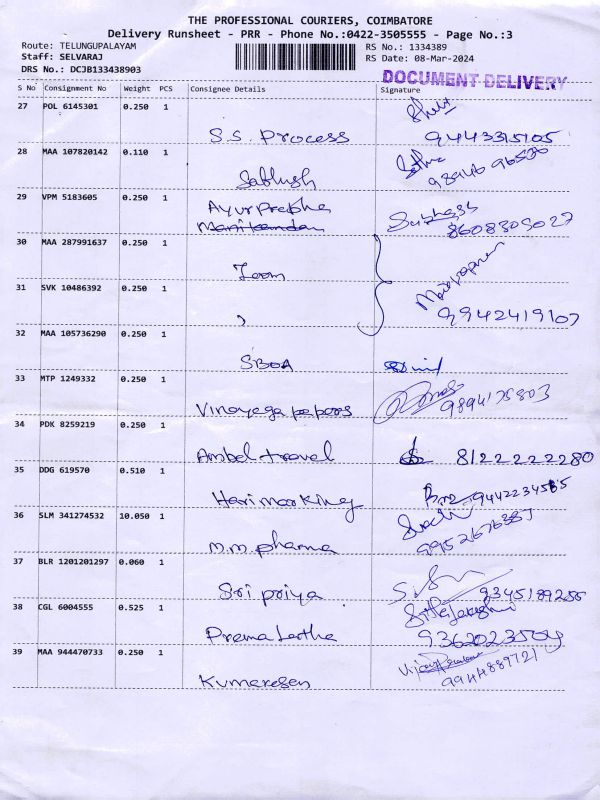 THE PROFESSIONAL COURIERS, COIMBATORE
Delivery Runsheet - PRR - Phone No.:0422-3505555 - Page No.:3
Route: TELUNGUPALAYAM
Staff: SELVARAJ
DRS No.: DCJB133438903
RS No.: 1334389
RS Date: 08-Mar-2024
DOCUMENT DELIVERY
S No Consignment No Weight PCS Consignee Details Signature
27 POL 6145301 0.250 1
S.S. Process 9443315105
28 MAA 107820142 0.110 1
Sabhish
29 VPM 5183605 0.250 1
AyurPrebha
Manikandan
8608305027
30 MAA 287991637 0.250 1
Zoom
31 SVK 10486392 0.250 1
9942419107
32 MAA 105736290 0.250 1
SBOA
33 MTP 1249332 0.250 1
Vinayega papers 9894175803
34 PDK 8259219 0.250 1
Ambel travel 8122222280
35 DDG 619570 0.510 1
Harimarking
36 SLM 341274532 10.050 1
M.M. pharma
37 BLR 1201201297 0.060 1
Sri priya 9345189255
38 CGL 6004555 0.525 1
Prema Latha
39 MAA 944470733 0.250 1
Kumaresen 9944889721